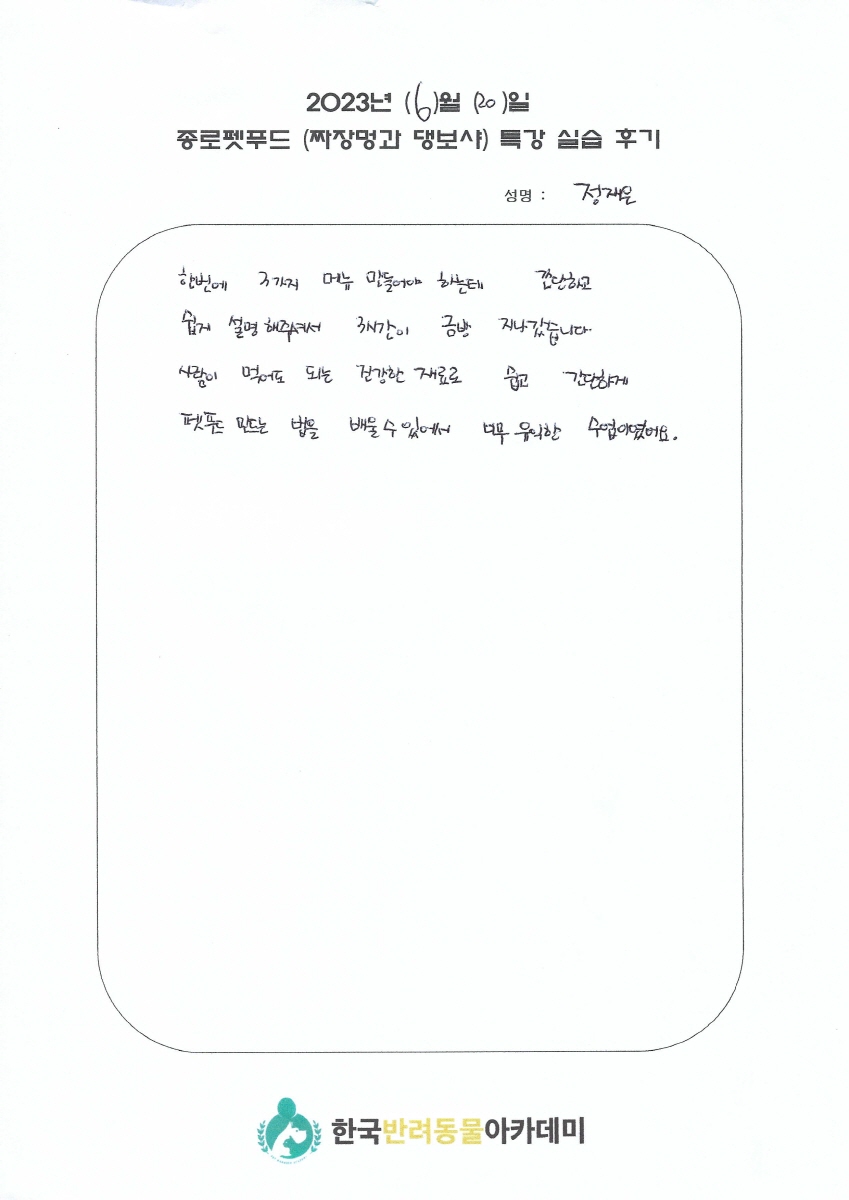 2023년 (6)월 (20)일
종로펫푸드 (짜장멍과 댕보샤) 특강 실습 후기
성명 : 정재은
한번에 3가지 메뉴 만들어야 하는데 간단하고
쉽게 설명 해주셔서 3시간이 금방 지나갔습니다.
사람이 먹어도 되는 건강한 재료로 쉽고 간단하게
펫푸드 만드는 법을 배울 수 있어서 너무 유익한 수업이였어요.
한국반려동물아카데미